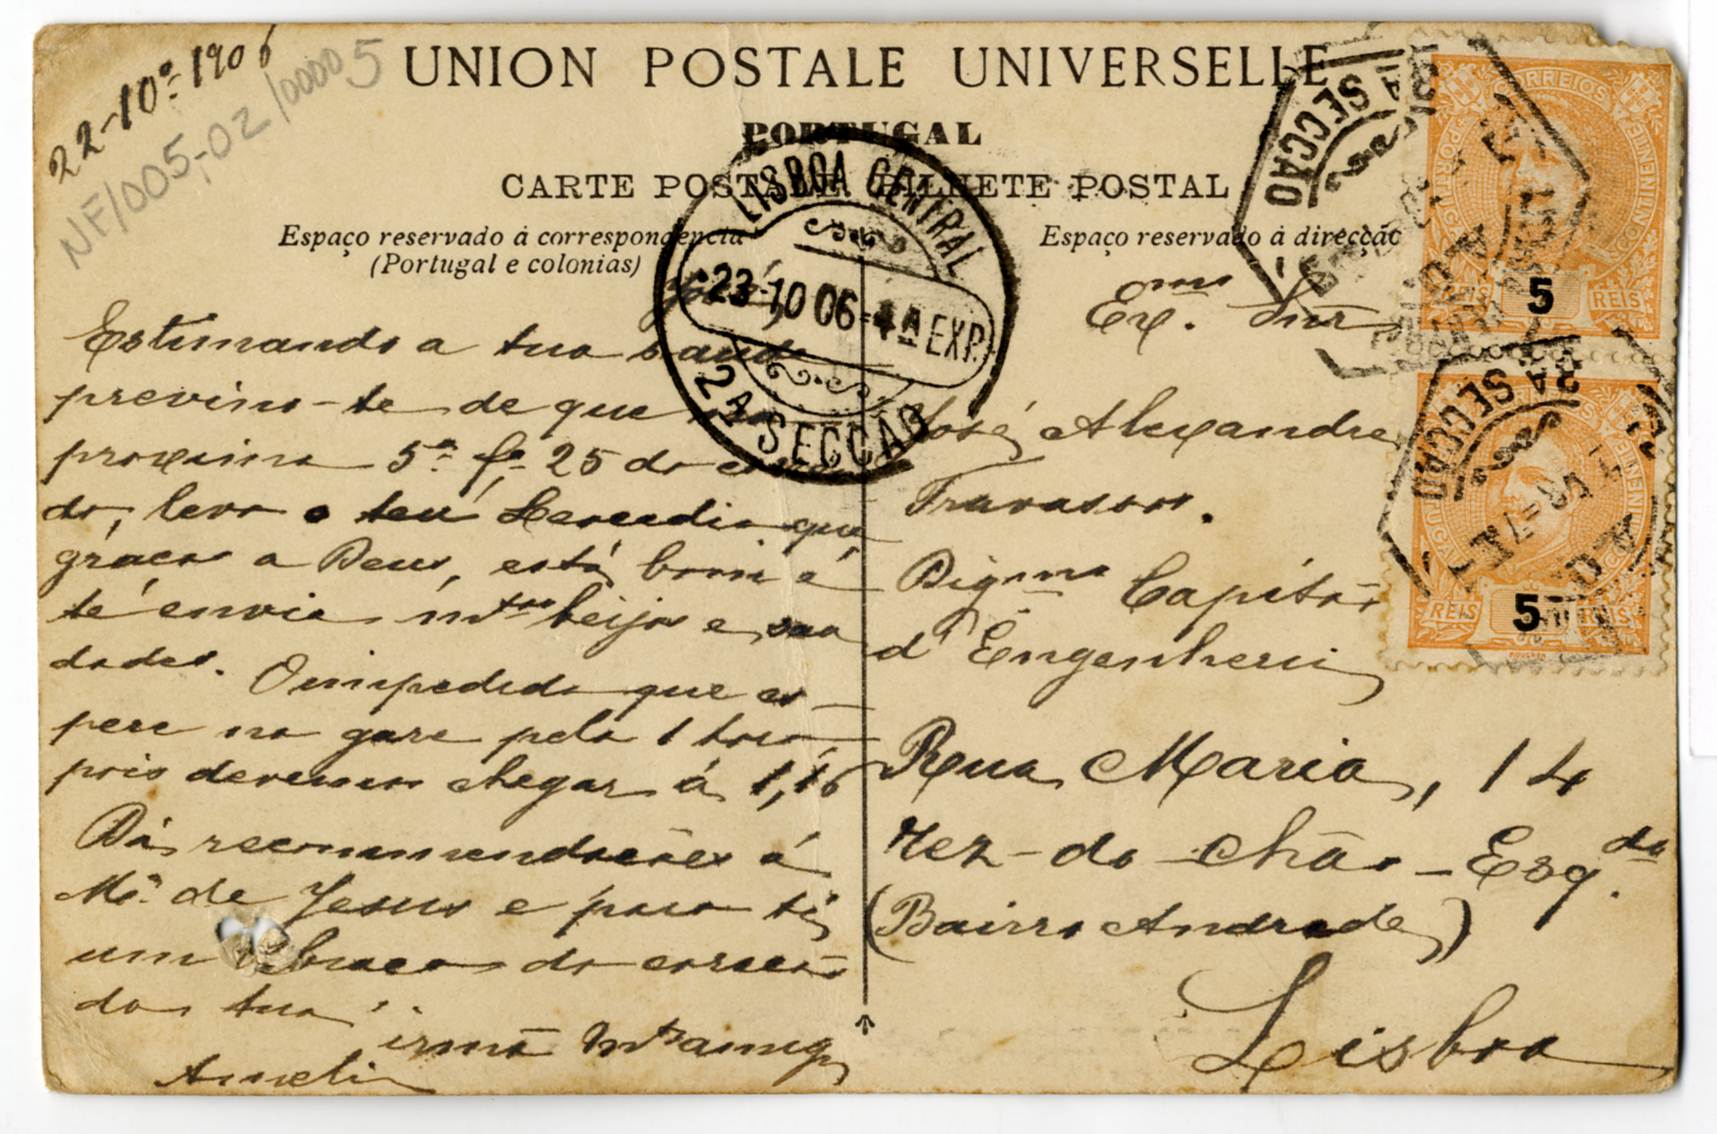 22-10º-1906
NF/005-02/00005
UNION POSTALE UNIVERSELLE
PORTUGAL
CARTE POSTALE BILHETE POSTAL
Espaço reservado á correspondencia
(Portugal e colonias)
Espaço reservado á direcção
LISBOA CENTRAL
23-10 06-4A EXP.
2A SECCÃO
2A SECCÃO
CORREIOS
PORTUGAL
CONTINENTE
5
REIS REIS
2A SECCÃO
5
REIS REIS
José
Estimando a tua saude
previno-te de que na
proxima 5ª fª 25 do corren
do, levo o teu Leocadio que
graças a Deus, está bom e
te envia mtos beijos e sau
dades. O impedido que es-
pere na gare pela 1 hora,
pois devemos chegar á 1,16
Dá recommendações á
Mª de Jesus e para ti
um abraço do coração
da tua
irmã Mto amiga
Amelia
Exmo Snr
José Alexandre
Travassos.
Digmo Capitão
d'Engenheria
Rua Maria, 14
rez-do-chão-Esq.da
(Bairro Andrade)
Lisboa